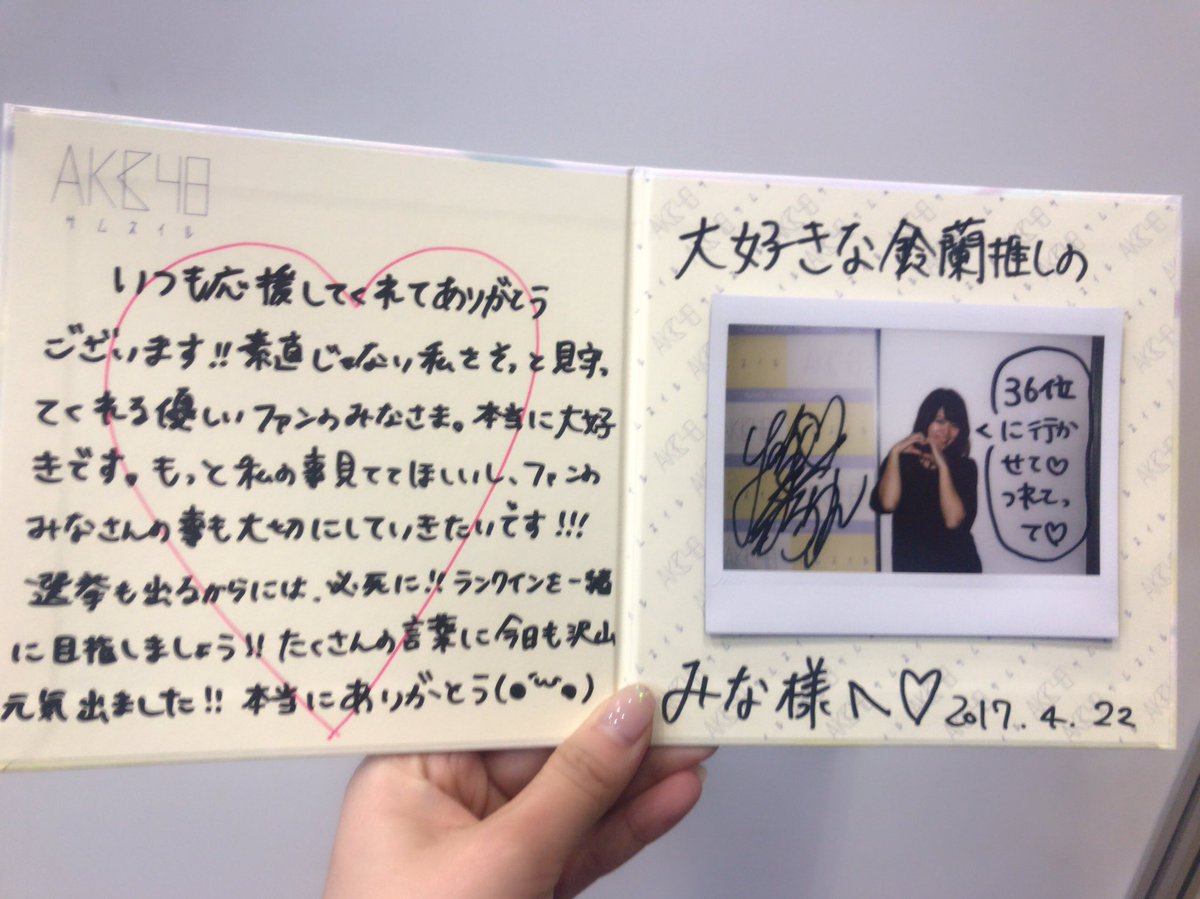 AKB48
サムネイル
いつも応援してくれてありがとう
ございます!!素直じゃない私をずっと見守っ
てくれる優しいファンのみなさま。本当に大好
きです。もっと私の事見ててほしいし、ファンの
みなさんの事も大切にしていきたいです!!!
選挙も出るからには、必死に!!ランクインを一緒
に目指しましょう!!たくさんの言葉に今日も沢山
元気出ました!!本当にありがとう(●´ω`●)
大好きな鈴蘭推しの
36位
に行か
せて♡
つれてっ
て♡
みな様へ♡2017.4.22